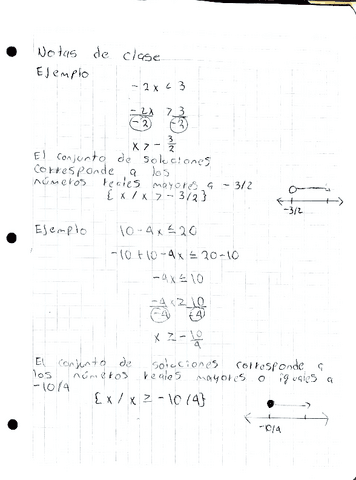 Notas de clase
Ejemplo
-2x < 3
-2x/-2 > 3/-2
x > - 3/2
El conjunto de soluciones
corresponde a los
números reales mayores a - 3/2
{x / x > - 3/2}
-3/2
Ejemplo 10 - 4x ≤ 20
-10 + 10 - 4x ≤ 20 - 10
-4x ≤ 10
-4/-4 ≥ 10/-4
x ≥ - 10/4
El conjunto de soluciones corresponde a
los números reales mayores o iguales a
-10/4
{x / x ≥ -10/4}
-10/4